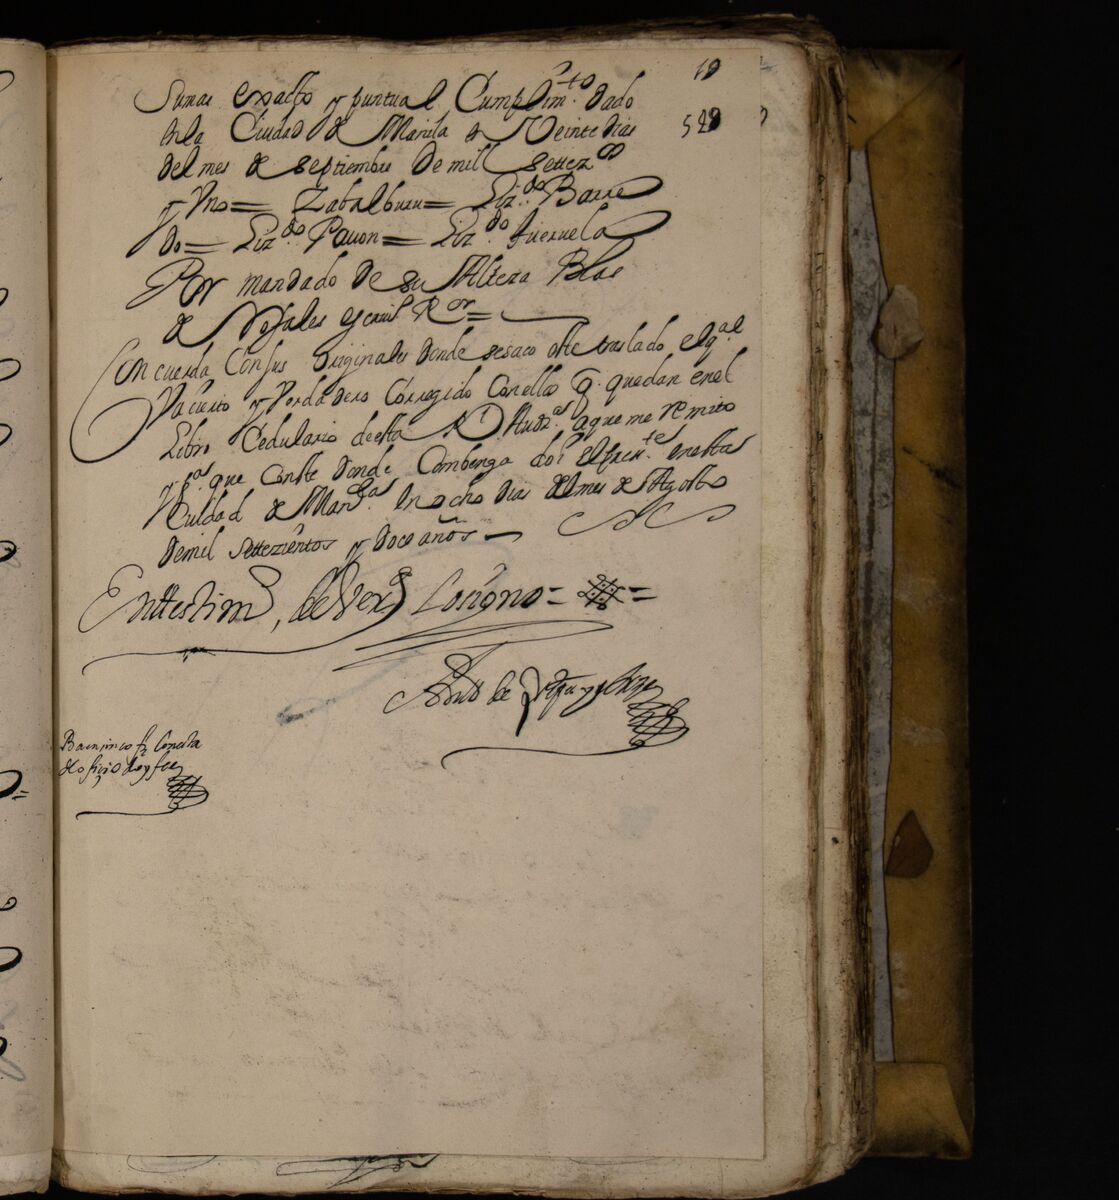 19
529
Sumas exacto y puntual Cumplim.to dado
en la Ciudad de Manila a Veinte dias
del mes de septiembre de mill settez.os
y Vno = Zabalburu = Liz.do Barre
do = Liz.do Pauon = Liz.do
Por mandado de su Alteza Blas
de Nogales escriu.o R.or =
Concuerda Con sus Originales donde se saco este traslado el q.al
Va cierto y Verdadero Corregido Con ellos q. quedan en el
Libro Cedulario de esta R.l Aud.a a que me remito
y p.a que Conste donde Combenga doi el pres.te en esta
Ciudad de Man.a en ocho dias del mes de Agosto
de mil settezientos y doce años
En testim.o de Verd Lo signo = =
Ant.o de